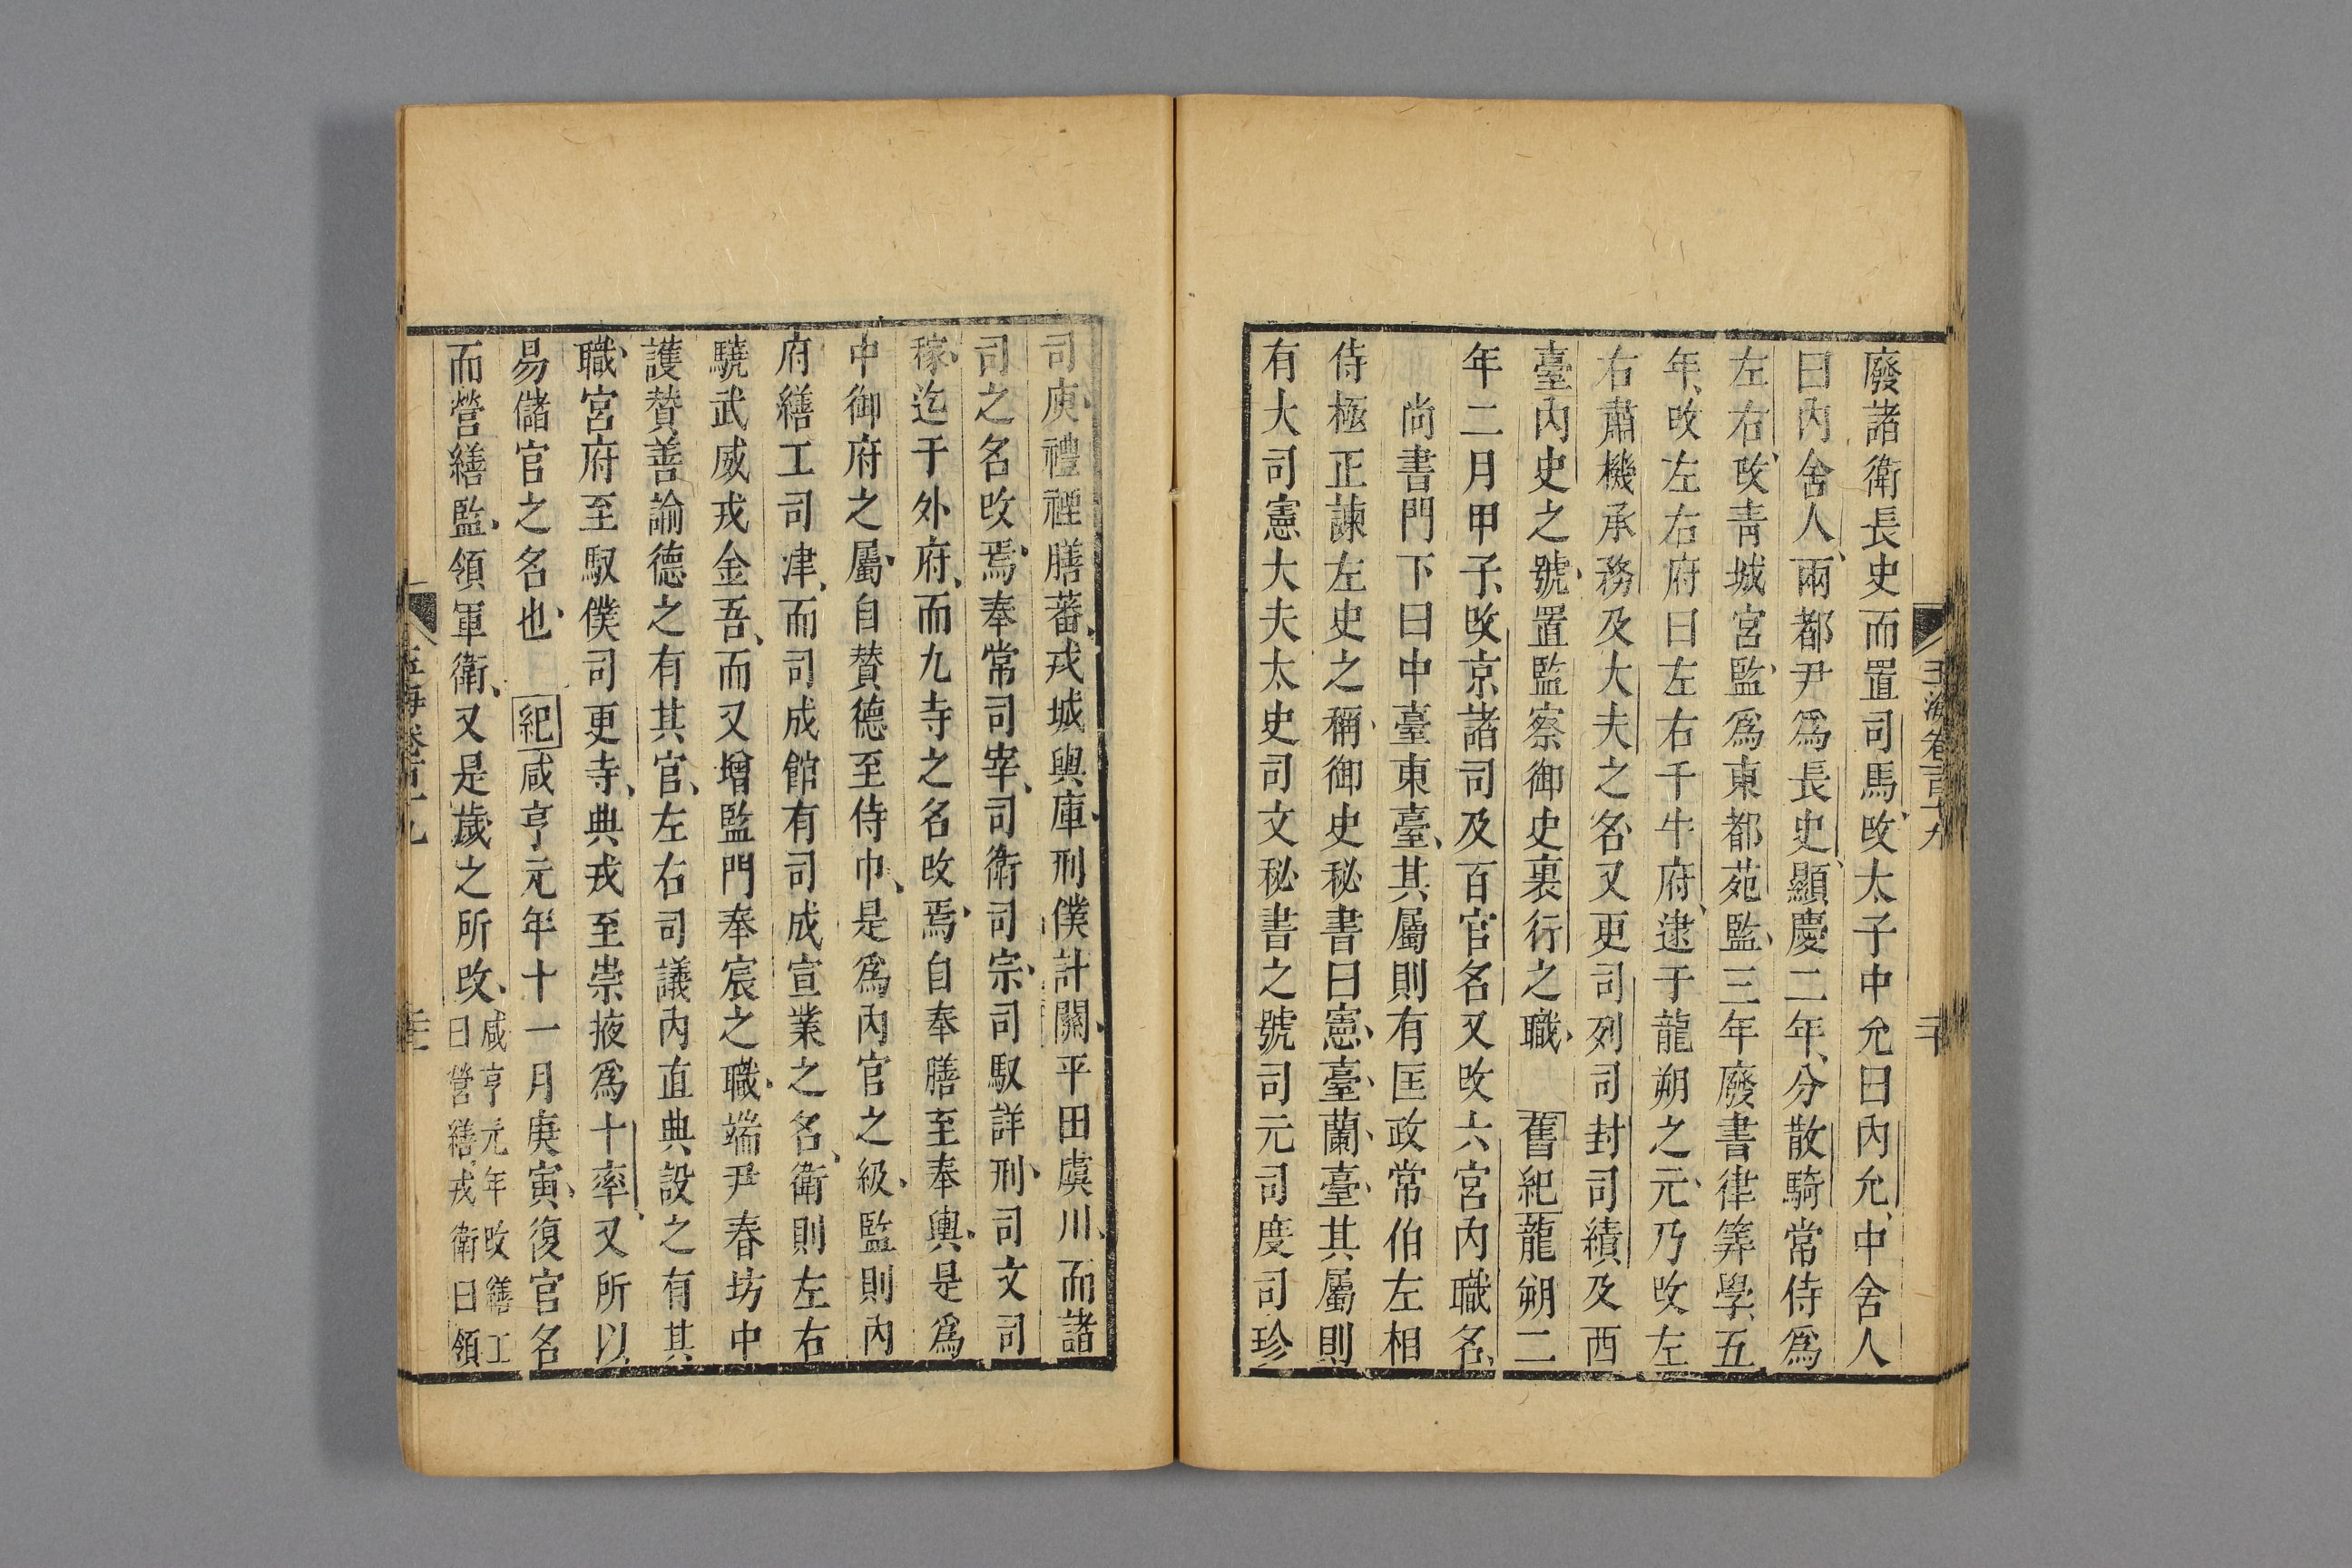 廢諸衛長史而置司馬改太子中允曰內允中舍人
曰內舍人兩都尹爲長史顯慶二年分散騎常侍爲
左右改青城宮監爲東都苑監三年廢書律筭學五
年改左右府曰左右千牛府逮于龍朔之元乃改左
右肅機承務及大夫之名又更司列司封司績及西
臺內史之號置監察御史裏行之職 舊紀龍朔二
年二月甲子改京諸司及百官名又改六宮內職名
尚書門下曰中臺東臺其屬則有匡政常伯左相
侍極正諫左史之稱御史秘書曰憲臺蘭臺其屬則
有大司憲大夫太史司文秘書之號司元司度司珍
玉海卷百十九 二十
司庾禮禋膳蕃戎城輿庫刑僕計關平田虞川而諸
司之名改焉奉常司宰司衛司宗司馭詳刑司文司
稼迄于外府而九寺之名改焉自奉膳至奉輿是爲
中御府之屬自贊德至侍巾是爲內官之級監則內
府繕工司津而司成館有司成宣業之名衛則左右
驍武威戎金吾而又增監門奉宸之職端尹春坊中
護贊善諭德之有其官左右司議內直典設之有其
職宮府至馭僕司更寺典戎至崇掖爲十率又所以
易儲官之名也 紀咸亨元年十一月庚寅復官名
而營繕監領軍衛又是歲之所改咸亨元年改繕工
曰營繕戎衛曰領